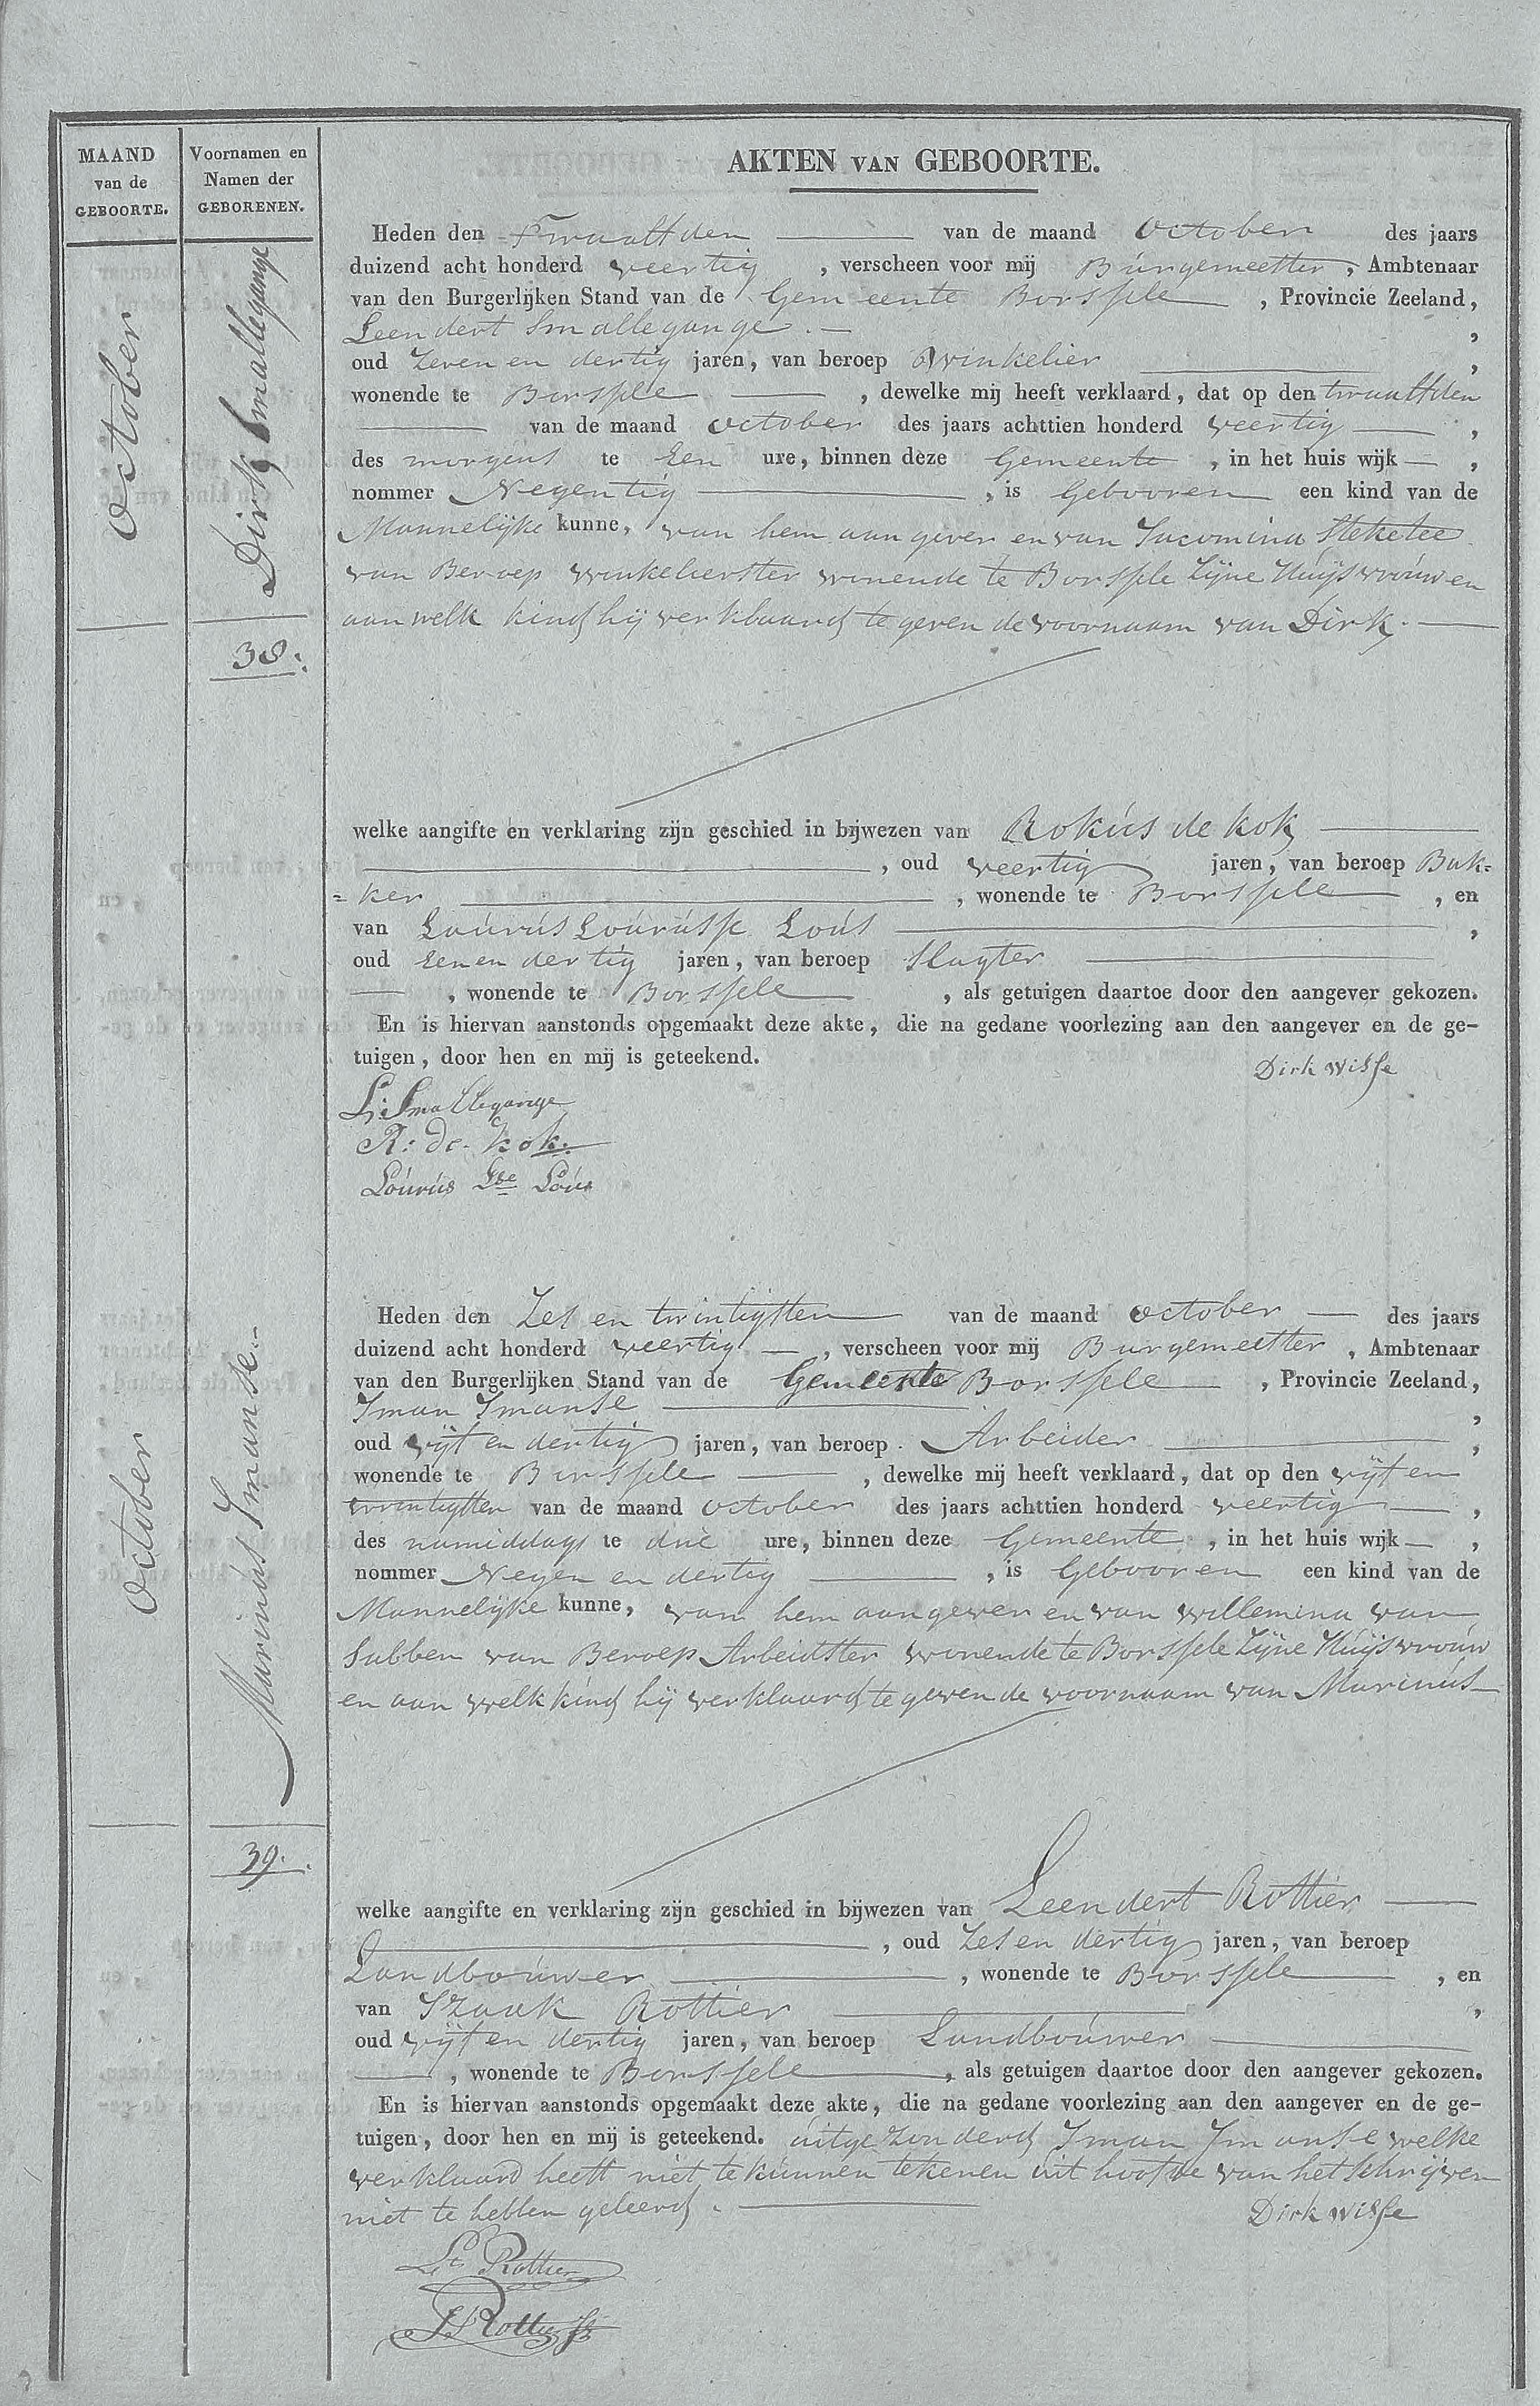 MAAND
van de
GEBOORTE.
Voornamen en
Namen der
GEBORENEN.
AKTEN VAN GEBOORTE.
October
Dirk Smallegange
38.
Heden den Twaalfden van de maand October des jaars
duizend acht honderd veertig, verscheen voor mij Burgemeester, Ambtenaar
van den Burgerlijken Stand van de Gemeente Borssele, Provincie Zeeland,
Leendert Smallegange.
oud zeven en dertig jaren, van beroep Winkelier,
wonende te Borssele, dewelke mij heeft verklaard, dat op den twaalfden
van de maand October des jaars achttien honderd veertig,
des morgens te Een ure, binnen deze Gemeente, in het huis wijk —,
nommer Negentig, is Gebooren een kind van de
Mannelijke kunne, van hem aangever en van Jacomina Steketee
van Beroep winkelierster wonende te Borssele Zijne Huijsvrouw en
aan welk kind hij verklaard te geven de voornaam van Dirk.
welke aangifte en verklaring zijn geschied in bijwezen van Rokús de Kok
, oud veertig jaren, van beroep Bak=
=ker, wonende te Borssele, en
van Lourús Lourusse Loús,
oud Eenen dertig jaren, van beroep Slagter
, wonende te Borssele, als getuigen daartoe door den aangever gekozen.
En is hiervan aanstonds opgemaakt deze akte, die na gedane voorlezing aan den aangever en de ge-
tuigen, door hen en mij is geteekend.
Dirk Wisse
L: Smallegange
R: de Kok.
Loúrús Lse Loús
October
Marinús Imanse.
39.
Heden den Zes en twintigsten van de maand October des jaars
duizend acht honderd veertig, verscheen voor mij Burgemeester, Ambtenaar
van den Burgerlijken Stand van de Gemeente Borssele, Provincie Zeeland,
Iman Imanse,
oud vijf en dertig jaren, van beroep Arbeider,
wonende te Borssele, dewelke mij heeft verklaard, dat op den vijf en
twintigsten van de maand October des jaars achttien honderd veertig,
des namiddags te drie ure, binnen deze Gemeente, in het huis wijk —,
nommer Negen en dertig, is Gebooren een kind van de
Mannelijke kunne, van hem aangever en van Willemina van
Sabben van Beroep Arbeidster wonende te Borssele Zijne Huijsvrouw
en aan welk kind hij verklaard te geven de voornaam van Marinús
welke aangifte en verklaring zijn geschied in bijwezen van Leendert Rottier
, oud Zes en dertig jaren, van beroep
Landboúwer, wonende te Borssele, en
van Izaak Rottier,
oud vijf en dertig jaren, van beroep Landboúwer
, wonende te Borssele, als getuigen daartoe door den aangever gekozen.
En is hiervan aanstonds opgemaakt deze akte, die na gedane voorlezing aan den aangever en de ge-
tuigen, door hen en mij is geteekend. úitgezonderd Iman Imanse welke
verklaard heeft niet te kúnnen tekenen uit hoofde van het schrijven
niet te hebben geleerd.
Dirk Wisse
Lt Rottier
I Rottier